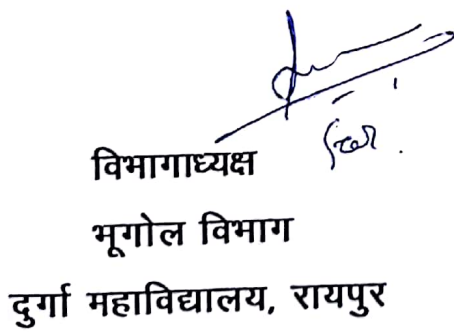 विभागाध्यक्ष
भूगोल विभाग
दुर्गा महाविद्यालय, रायपुर